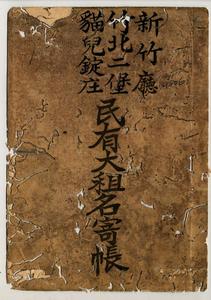 新竹廳
竹北二堡
貓兒錠庄
民有大租名寄帳